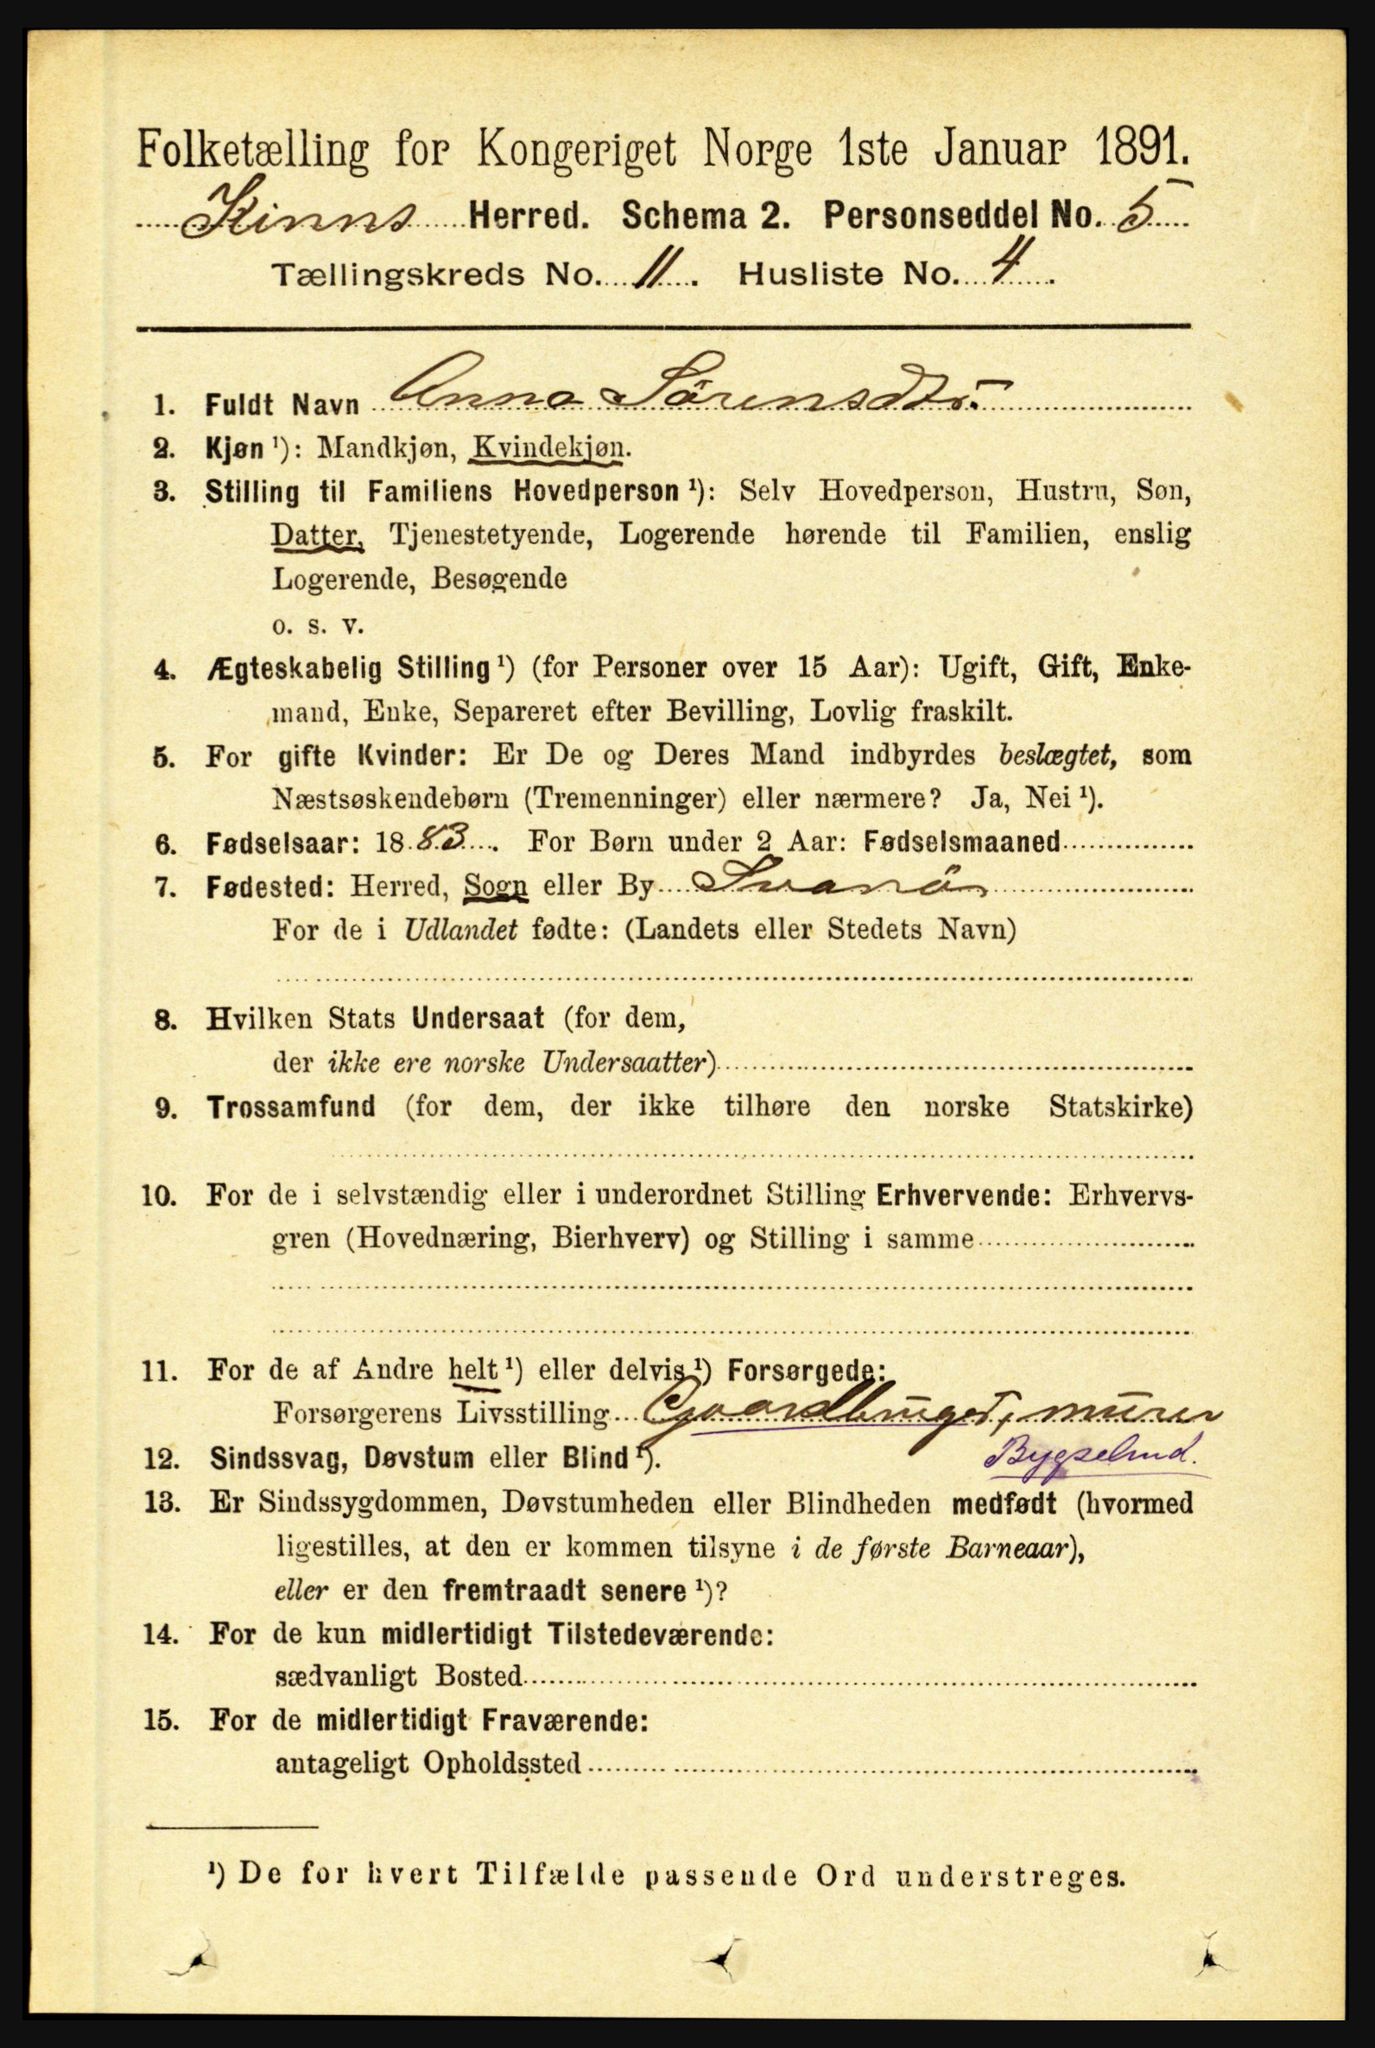 Folketælling for Kongeriget Norge 1ste Januar 1891.
Kinns Herred. Schema 2. Personseddel No. 5
Tællingskreds No. 11. Husliste No. 4.
1. Fuldt Navn Anna Sørensdtr.
2. Kjøn ¹): Mandkjøn, Kvindekjøn.
3. Stilling til Familiens Hovedperson ¹): Selv Hovedperson, Hustru, Søn,
Datter, Tjenestetyende, Logerende hørende til Familien, enslig
Logerende, Besøgende
o. s. v.
4. Ægteskabelig Stilling ¹) (for Personer over 15 Aar): Ugift, Gift, Enke-
mand, Enke, Separeret efter Bevilling, Lovlig fraskilt.
5. For gifte Kvinder: Er De og Deres Mand indbyrdes beslægtet, som
Næstsøskendebørn (Tremenninger) eller nærmere? Ja, Nei ¹).
6. Fødselsaar: 1883. For Børn under 2 Aar: Fødselsmaaned
7. Fødested: Herred, Sogn eller By Svanø
For de i Udlandet fødte: (Landets eller Stedets Navn)
8. Hvilken Stats Undersaat (for dem,
der ikke ere norske Undersaatter)
9. Trossamfund (for dem, der ikke tilhøre den norske Statskirke)
10. For de i selvstændig eller i underordnet Stilling Erhvervende: Erhvervs-
gren (Hovednæring, Bierhverv) og Stilling i samme
11. For de af Andre helt ¹) eller delvis ¹) Forsørgede:
Forsørgerens Livsstilling Gaardbruger, murer
12. Sindssvag, Døvstum eller Blind ¹). Bygselmd.
13. Er Sindssygdommen, Døvstumheden eller Blindheden medfødt (hvormed
ligestilles, at den er kommen tilsyne i de første Barneaar),
eller er den fremtraadt senere ¹)?
14. For de kun midlertidigt Tilstedeværende:
sædvanligt Bosted
15. For de midlertidigt Fraværende:
antageligt Opholdssted
¹) De for hvert Tilfælde passende Ord understreges.